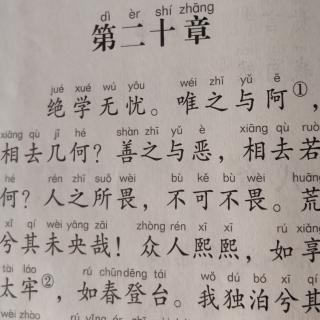 dì èr shí zhāng
第二十章
jué xué wú yōu wéi zhī yǔ ē
绝学无忧。唯之与阿①，
xiāng qù jǐ hé shàn zhī yǔ è xiāng qù ruò
相去几何？善之与恶，相去若
hé rén zhī suǒ wèi bù kě bù wèi huāng
何？人之所畏，不可不畏。荒
xī qí wèi yāng zāi zhòng rén xī xī rú
兮其未央哉！众人熙熙，如享
tài láo rú chūn dēng tái wǒ dú bó xī qí
太牢②，如春登台。我独泊兮其
wèi zhào